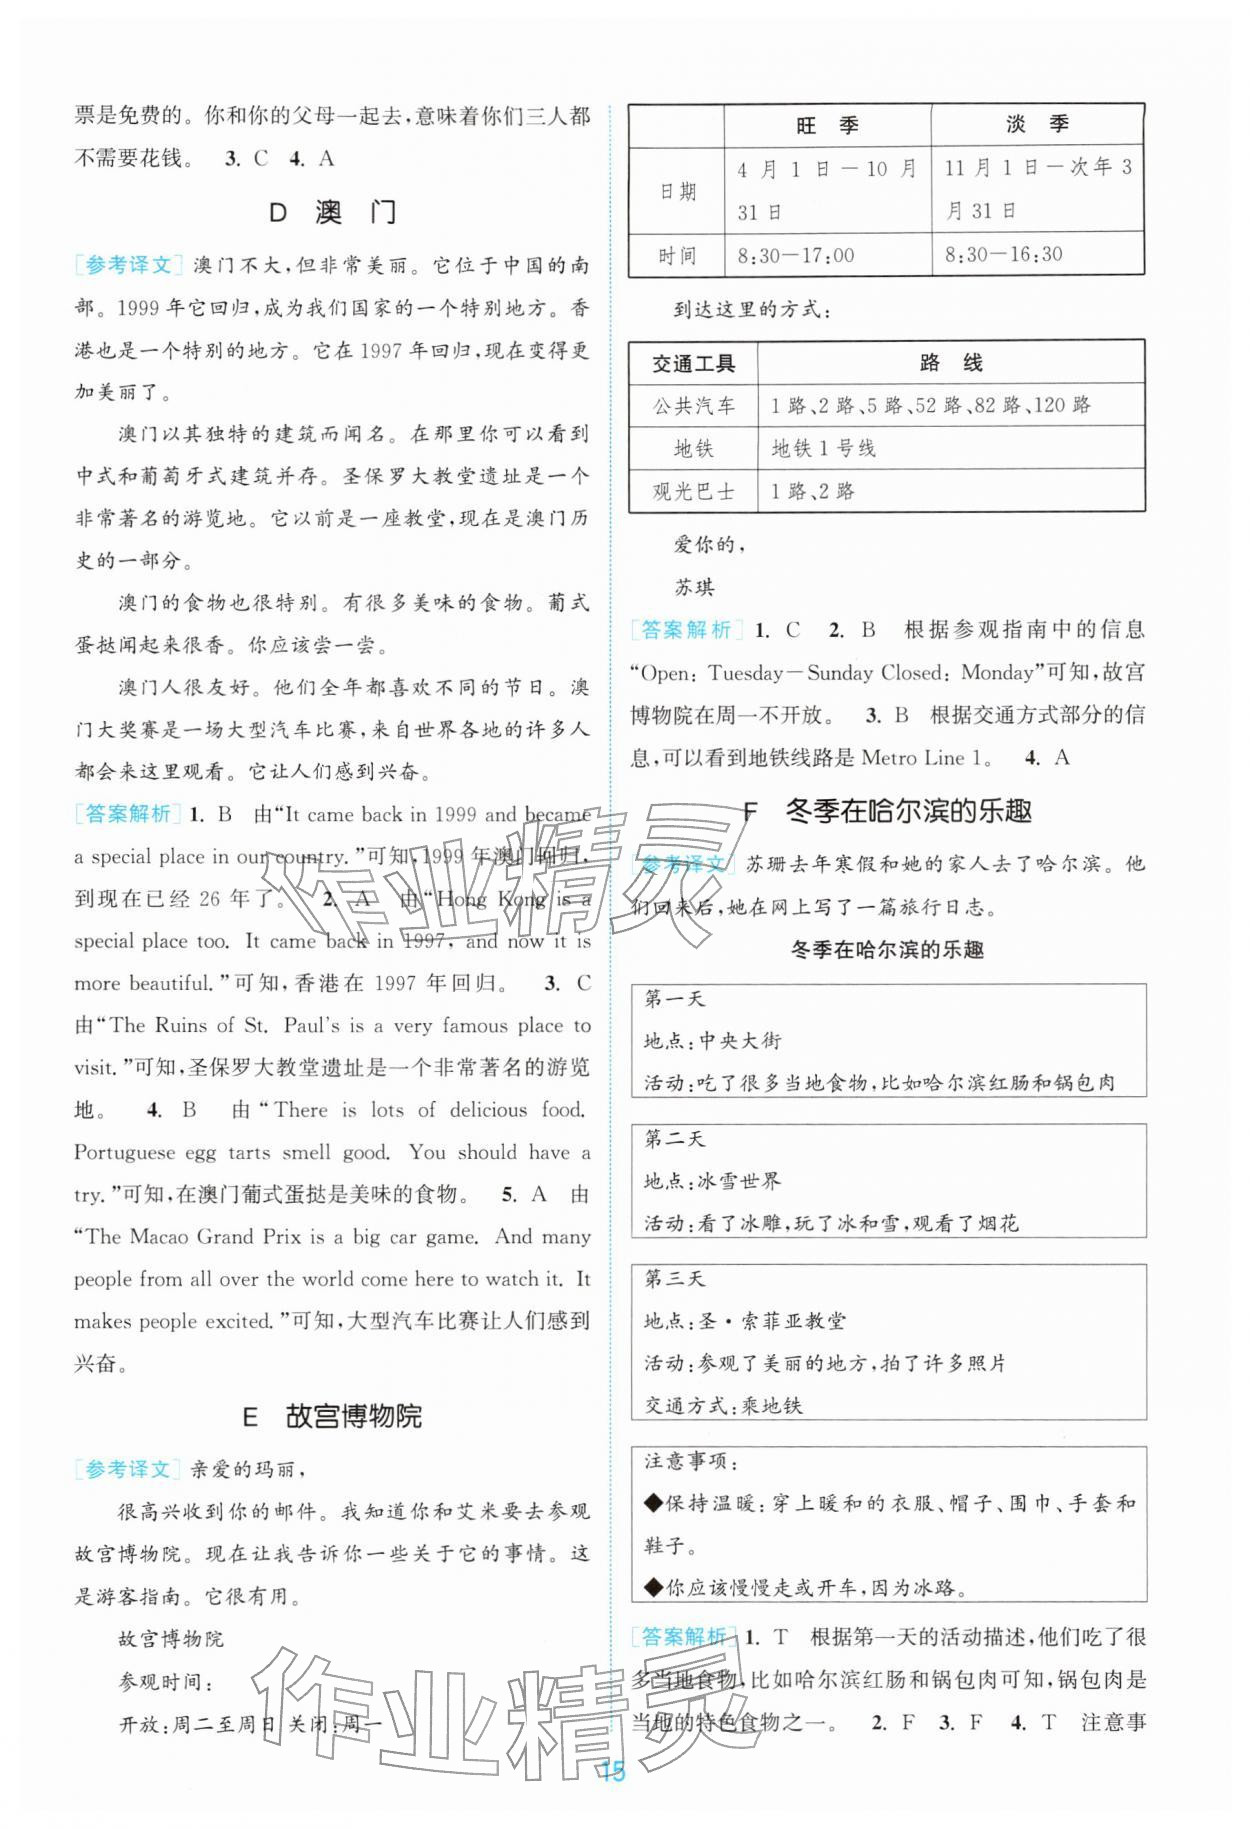 票是免费的。你和你的父母一起去,意味着你们三人都
不需要花钱。 3. C 4. A
D 澳 门
[参考译文] 澳门不大,但非常美丽。它位于中国的南
部。1999 年它回归,成为我们国家的一个特别地方。香
港也是一个特别的地方。它在 1997 年回归,现在变得更
加美丽了。
澳门以其独特的建筑而闻名。在那里你可以看到
中式和葡萄牙式建筑并存。圣保罗大教堂遗址是一个
非常著名的游览地。它以前是一座教堂,现在是澳门历
史的一部分。
澳门的食物也很特别。有很多美味的食物。葡式
蛋挞闻起来很香。你应该尝一尝。
澳门人很友好。他们全年都喜欢不同的节日。澳
门大奖赛是一场大型汽车比赛,来自世界各地的许多人
都会来这里观看。它让人们感到兴奋。
[答案解析] 1. B 由“It came back in 1999 and became
a special place in our country.”可知,1999 年澳门回归,
到现在已经 26 年了。 2. A 由“Hong Kong is a
special place too. It came back in 1997, and now it is
more beautiful.”可知,香港在 1997 年回归。 3. C
由“The Ruins of St. Paul's is a very famous place to
visit.”可知,圣保罗大教堂遗址是一个非常著名的游览
地。 4. B 由“There is lots of delicious food.
Portuguese egg tarts smell good. You should have a
try.”可知,在澳门葡式蛋挞是美味的食物。 5. A 由
“The Macao Grand Prix is a big car game. And many
people from all over the world come here to watch it. It
makes people excited.”可知,大型汽车比赛让人们感到
兴奋。
E 故宫博物院
[参考译文] 亲爱的玛丽,
很高兴收到你的邮件。我知道你和艾米要去参观
故宫博物院。现在让我告诉你一些关于它的事情。这
是游客指南。它很有用。
故宫博物院
参观时间:
开放:周二至周日 关闭:周一
旺 季 淡 季
日期 4 月 1 日－10 月 31 日 11 月 1 日－次年 3 月 31 日
时间 8:30－17:00 8:30－16:30
到达这里的方式:
交通工具 路 线
公共汽车 1 路、2 路、5 路、52 路、82 路、120 路
地铁 地铁 1 号线
观光巴士 1 路、2 路
爱你的,
苏琪
[答案解析] 1. C 2. B 根据参观指南中的信息
“Open: Tuesday－Sunday Closed: Monday”可知,故宫
博物院在周一不开放。 3. B 根据交通方式部分的信
息,可以看到地铁线路是 Metro Line 1。 4. A
F 冬季在哈尔滨的乐趣
[参考译文] 苏珊去年寒假和她的家人去了哈尔滨。他
们回来后,她在网上写了一篇旅行日志。
冬季在哈尔滨的乐趣
第一天
地点:中央大街
活动:吃了很多当地食物,比如哈尔滨红肠和锅包肉
第二天
地点:冰雪世界
活动:看了冰雕,玩了冰和雪,观看了烟花
第三天
地点:圣·索菲亚教堂
活动:参观了美丽的地方,拍了许多照片
交通方式:乘地铁
注意事项:
◆保持温暖:穿上暖和的衣服、帽子、围巾、手套和
鞋子。
◆你应该慢慢走或开车,因为冰路。
[答案解析] 1. T 根据第一天的活动描述,他们吃了很
多当地食物,比如哈尔滨红肠和锅包肉可知,锅包肉是
当地的特色食物之一。 2. F 3. F 4. T 注意事
15
作业精灵
作业精灵